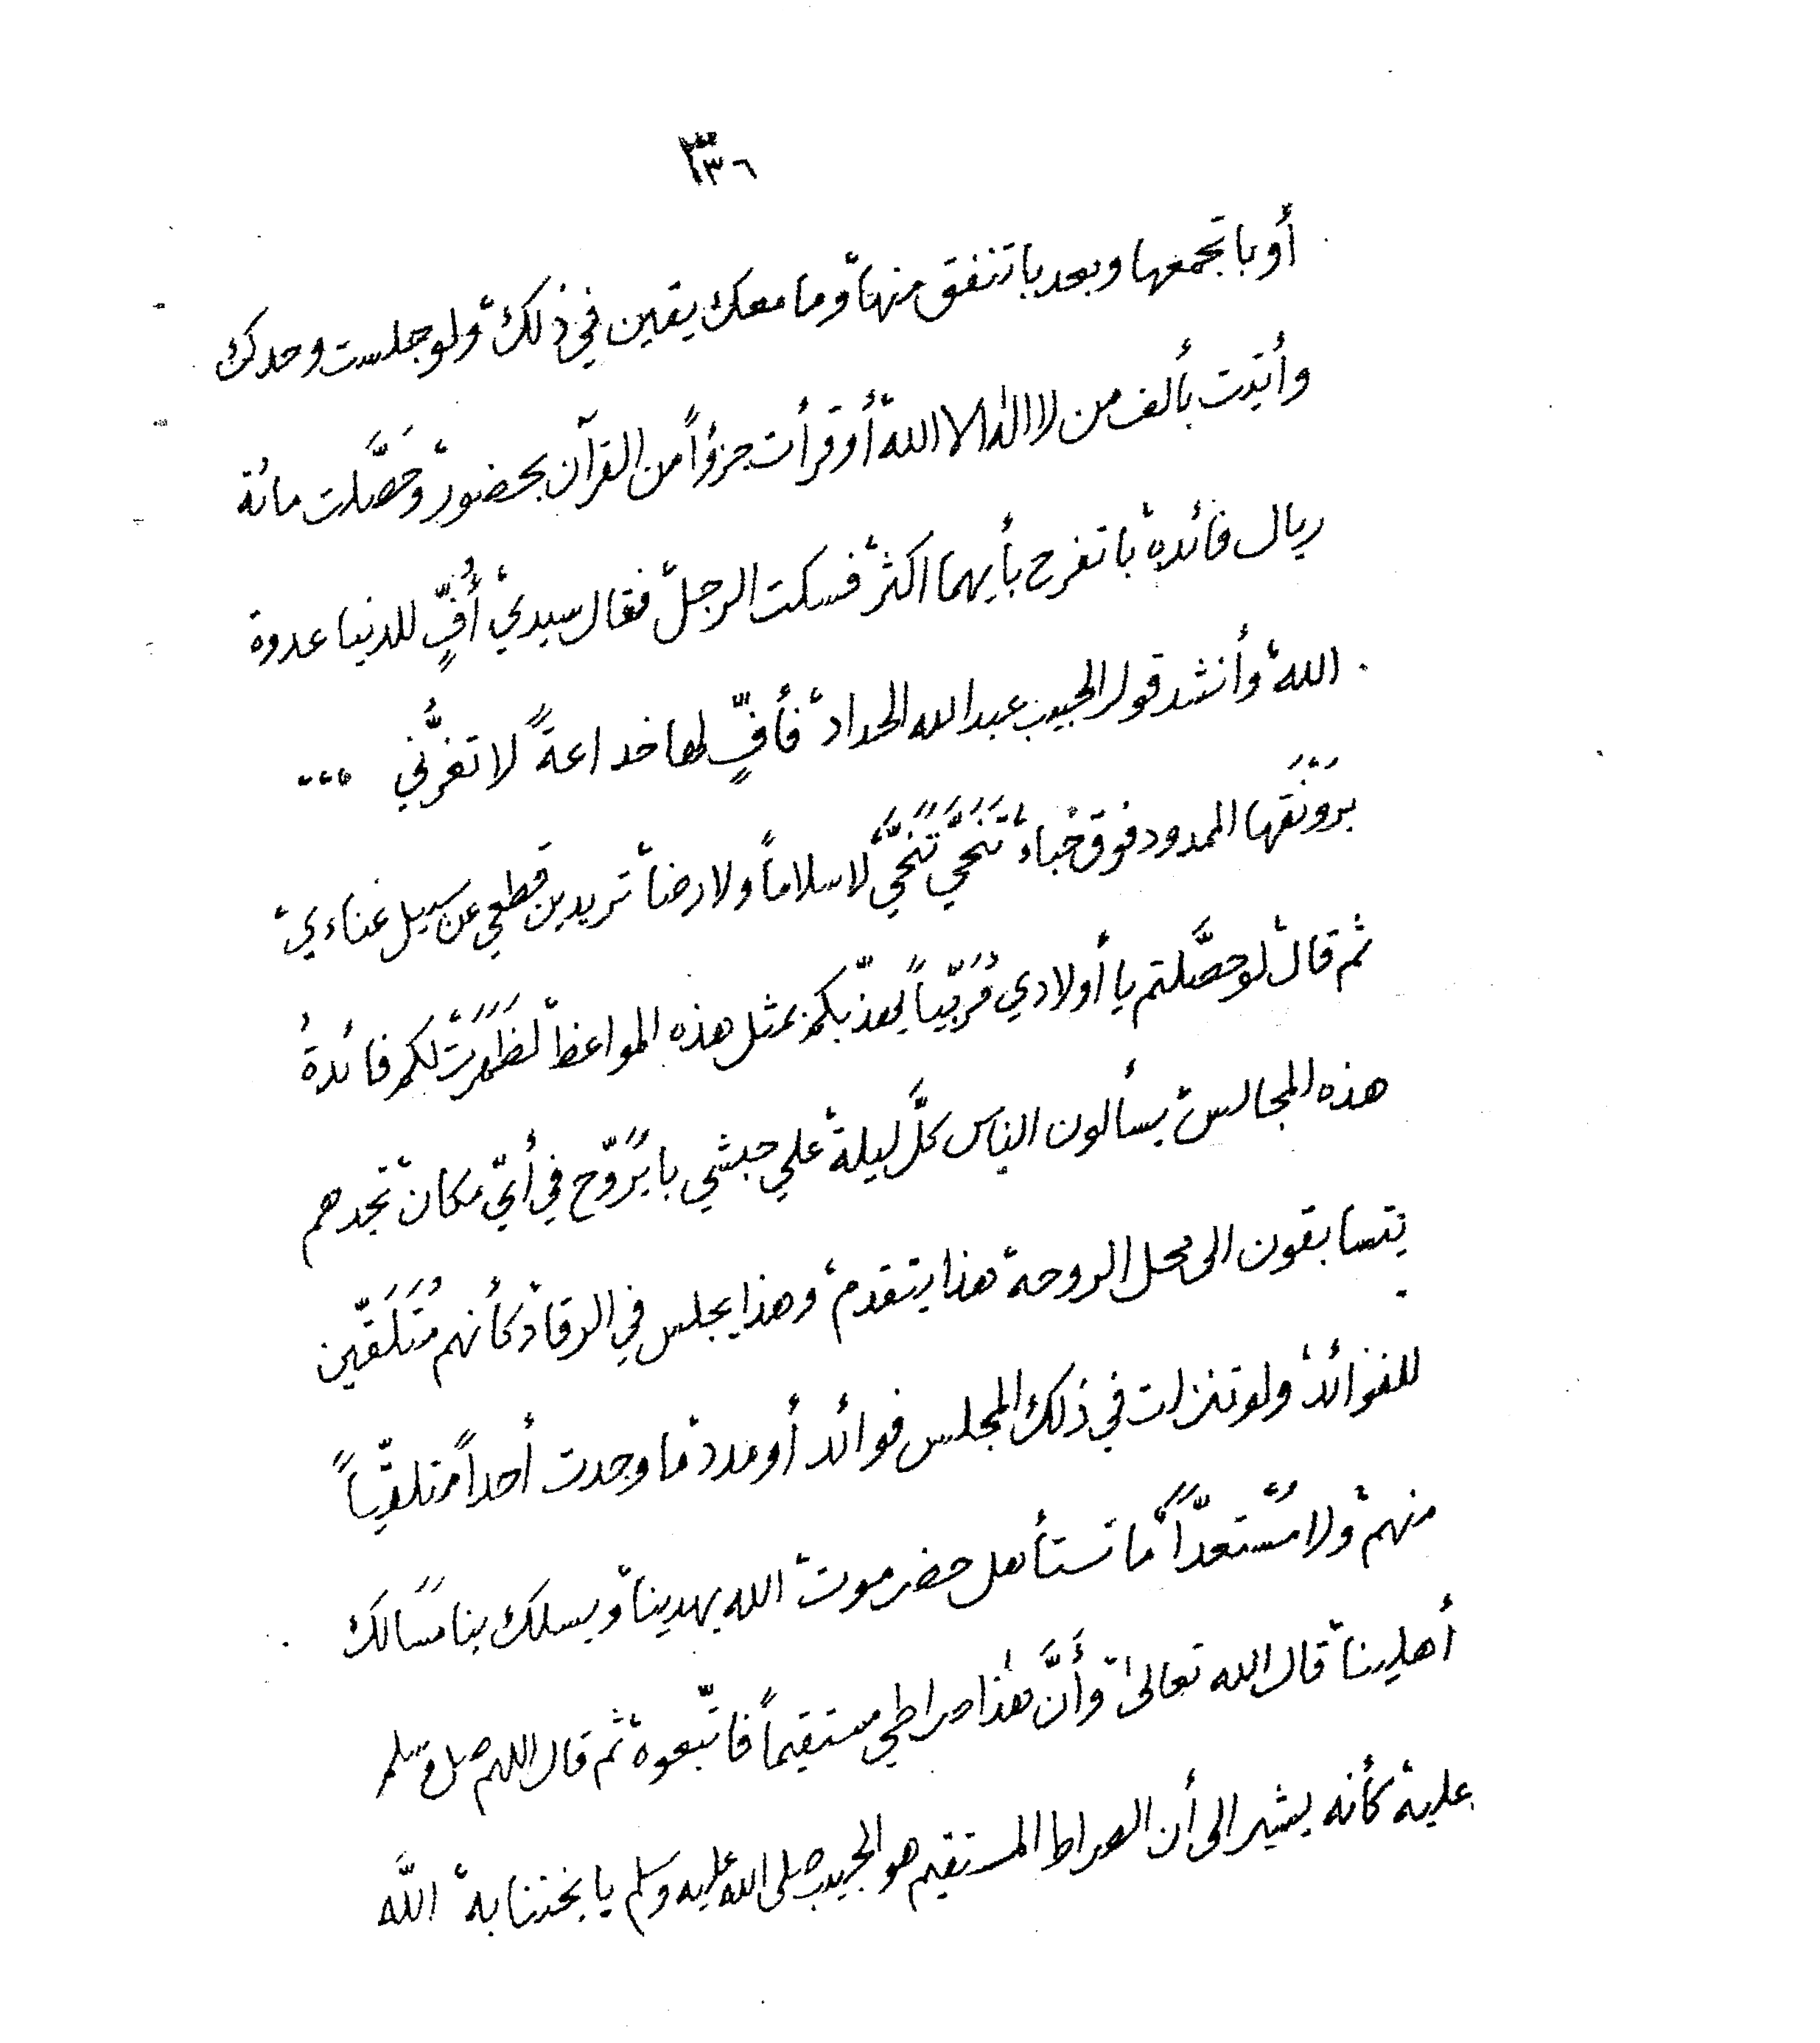 ٣٣٦
أو با تجمعها وبعد با تنفق منها، وما معك يقين في ذلك، ولو جلست وحدك
وأتيت بألف من لا اله الا الله، أو قرأت جزؤاً من القرآن بحضور، وحصَّلت مائة
ريال فائده، با تفرح بأيهما اكثر، فسكت الرجل، فقال سيدي، أُفٍّ للدنيا عدوة
الله، وأنشد قول الحبيب عبدالله الحداد، فأفٍّ لها خداعةً لا تغرُّني ...
برَوْنَقها الممدود فوق خباء، تَنَحَّي تَنَحَّي، لا سلاماً ولا رضا، تريدين قطعي عن سبيل غناءي،
ثم قال، لو حصَّلتم يا أولادي مُرَبّياً يعذّبكم بمثل هذه المواعظ، لظَهَرَت لكم فائدةُ
هذه المجالس، يسألون الناس كلَّ ليلة، علي حبشي با يُرَوّح في أيّ مكان، تجدهم
يتسابقون الى محل الروحة، هذا يتقدم، وهذا يجلس في الرقاد، كأنهم مُتَلَقّين
للفوائد، ولو تنزلت في ذلك المجلس فوائد أو مدد، ما وجدت أحداً متلقّياً
منهم، ولا مُسْتعدّاً، ما تستأهل حضرموت، الله يهدينا، ويسلك بنا مسالك
أهلينا، قال الله تعالى، وأَنَّ هٰذا صراطي مستقيماً فاتّبعوه، ثم قال اللهم صل وسلم
عليه، كأنه يشير الى أن الصراط المستقيم هو الحبيب صلى الله عليه وسلم يا بختنا به، اللَّه